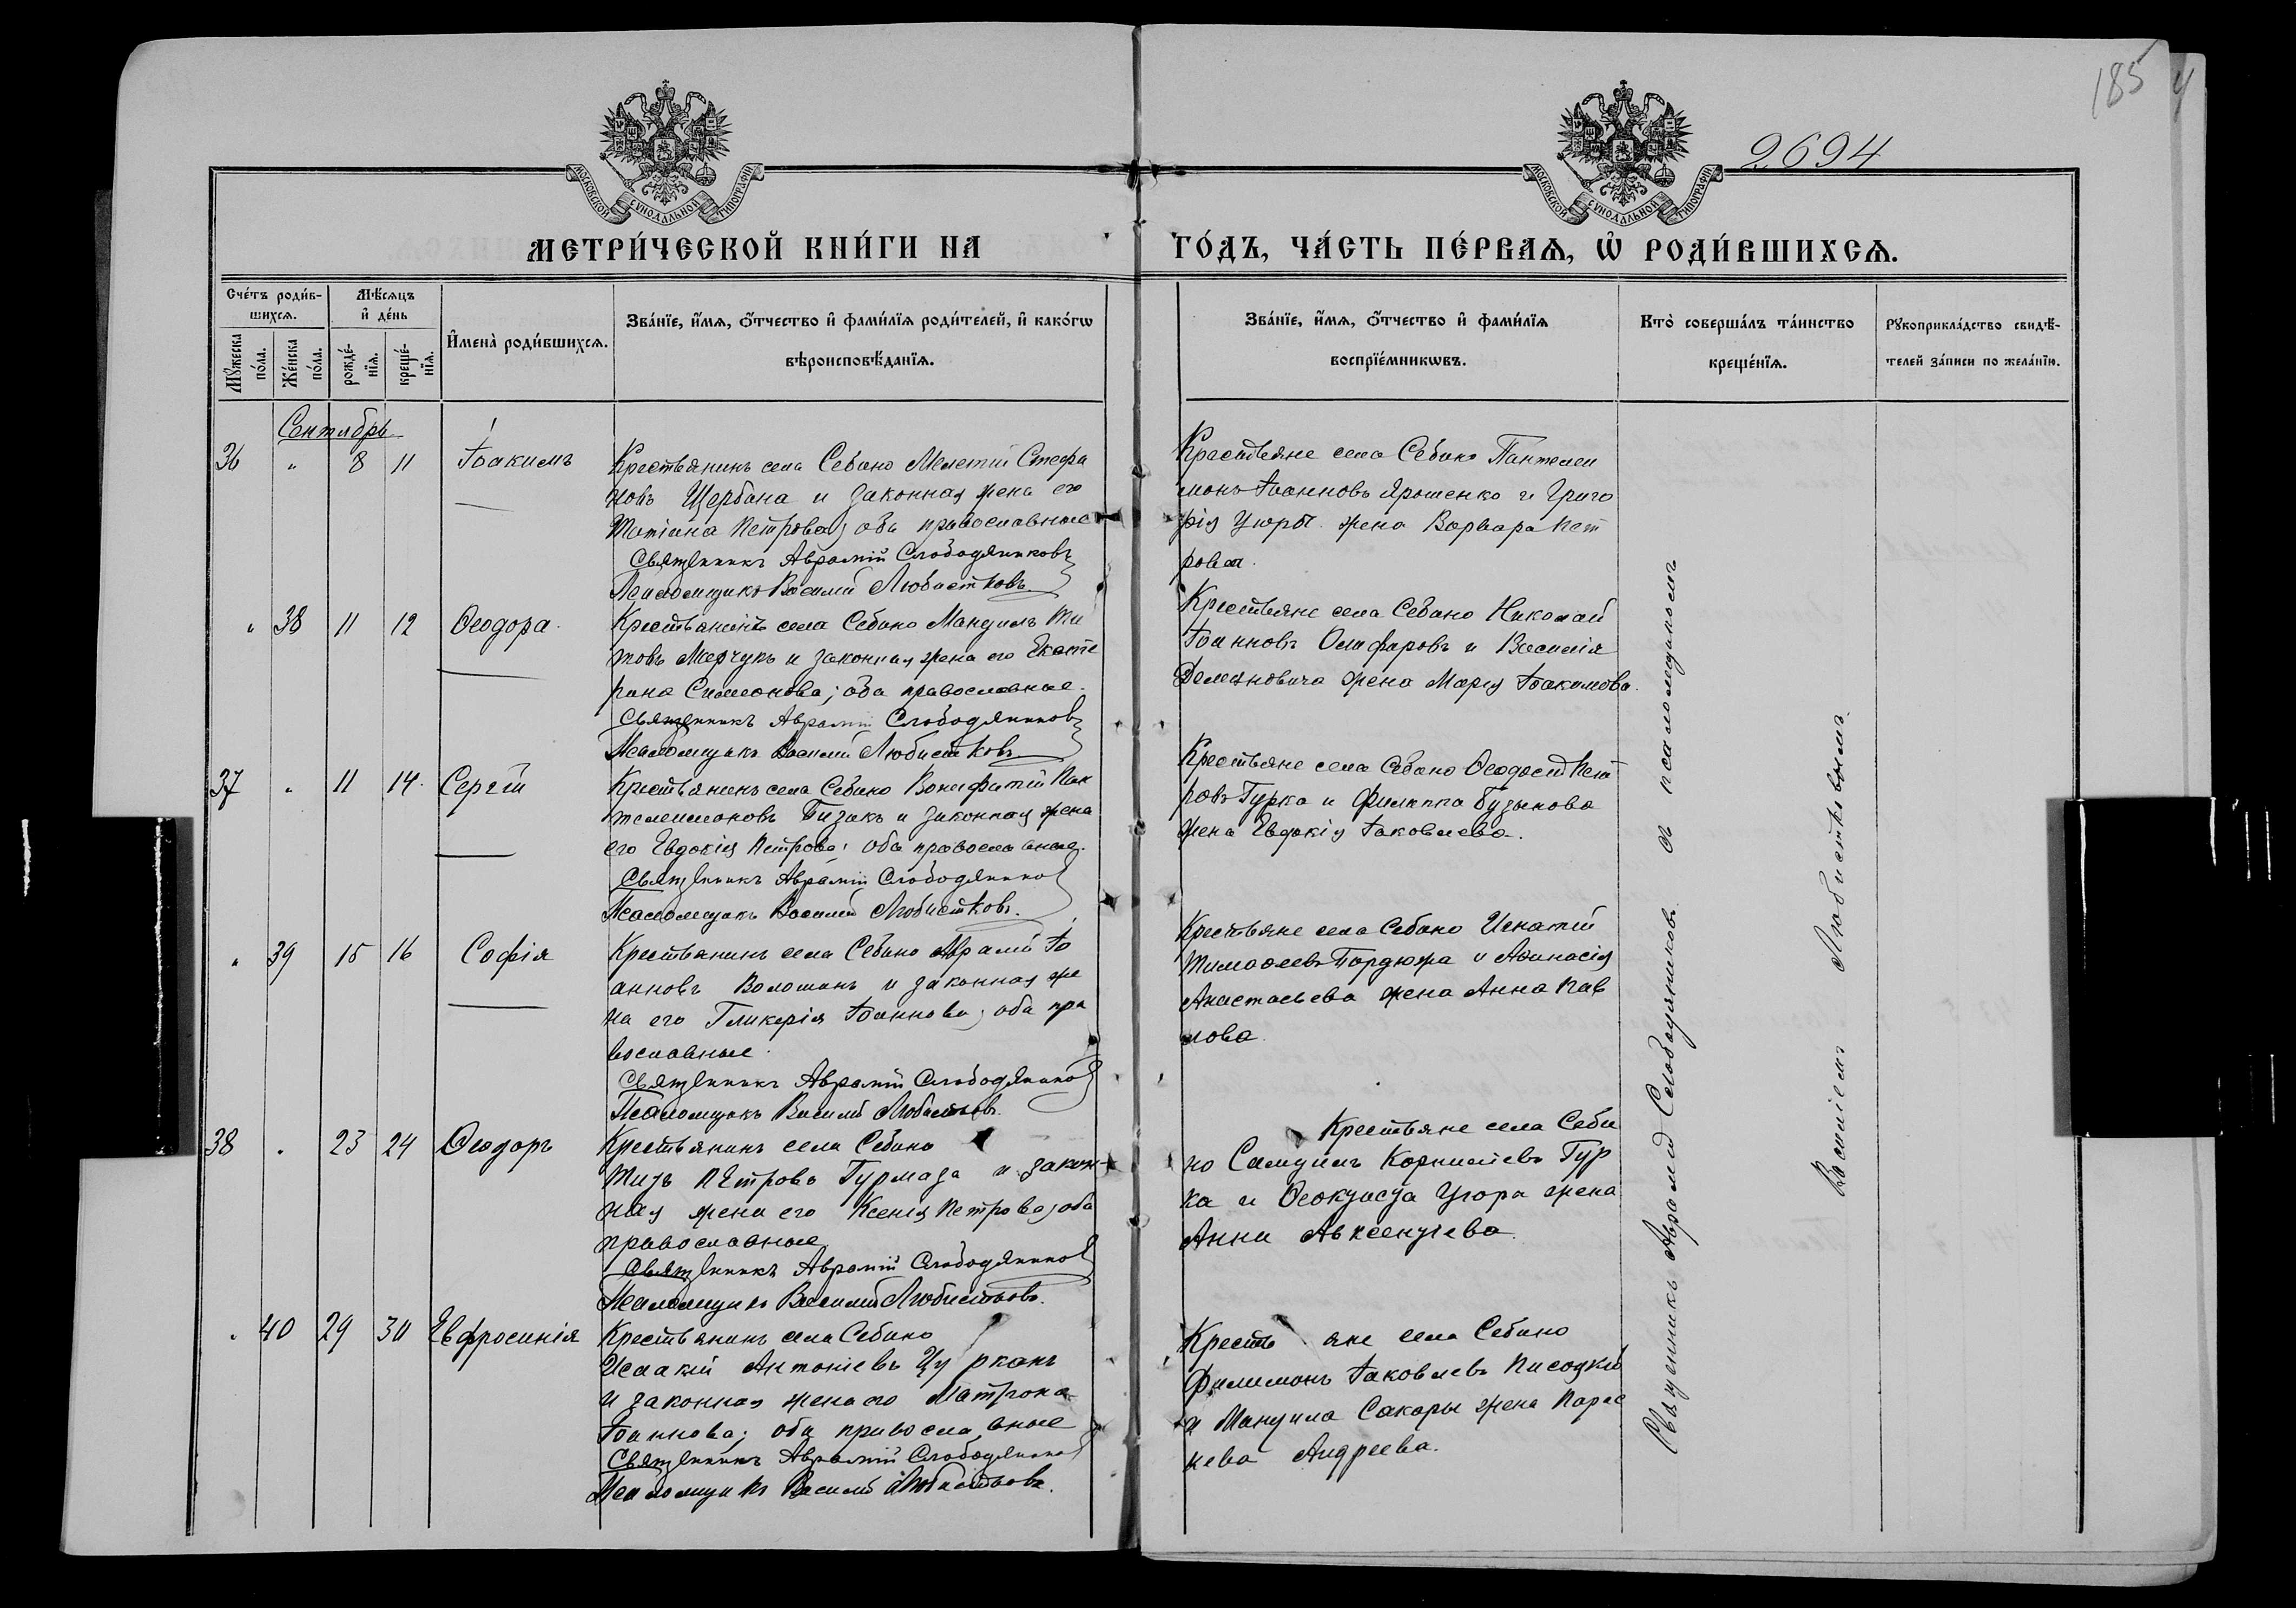 185
2694
МОСКОВСКОЙ СѴНОДАЛЬНОЙ ТИПОГРАФІИ
МОСКОВСКОЙ СѴНОДАЛЬНОЙ ТИПОГРАФІИ
МЕТРИ́ЧЕСКОЙ КНИ́ГИ НА ГО́ДЪ, ЧА́СТЬ ПЕ́РВАѦ, Ѡ РОДИ́ВШИХСѦ.
Сче́тъ роди́в-
шихсѧ.
Мꙋжеска по́ла.
Же́нска по́ла.
Мѣ́сѧцъ
и де́нь
рожде́-
нїѧ.
креще́-
нїѧ.
Имена̀ роди́вшихсѧ.
Зва́нїе, и́мѧ, о́тчество и фами́лїѧ роди́телей, и како́гѡ
вѣроисповѣ́данїѧ.
Зва́нїе, и́мѧ, о́тчество и фами́лїѧ
воспрїе́мникѡвъ.
Кто̀ соверша́лъ та́инство
креще́нїѧ.
Рꙋкоприкла́дство свидѣ́-
телей за́писи по жела́нїю.
Сентябрь
36 " 8 11 Іоакимъ
Крестьянинъ села Себино Мелетій Стефа
новъ Щербина и законная жена его
Татіана Петрова; оба православные
Священникъ Аврамій Слободяниковъ
Псаломщикъ Василій Любистковъ
Крестьяне села Себино Пантелеи
монъ Іоанновъ Ярошенко и Григо
рія Цюры жена Варвара Пет
рова.
" 38 11 12 Ѳеодора
Крестьянинъ села Себино Мануилъ Ти
товъ Марчукъ и законная жена его Екате
рина Симеонова; оба православные.
Священникъ Аврамій Слободяниковъ
Псаломщикъ Василій Любистковъ
Крестьяне села Себино Николай
Іоанновъ Олиферовъ и Василія
Демяновича жена Марія Іоакимова.
37 " 11 14. Сергій
Крестьянинъ села Себино Вонифатій Пан
телеимоновъ Бизикъ и законная жена
его Евдокія Петрова; оба православные.
Священникъ Аврамій Слободяников
Псаломщикъ Василій Любистковъ.
Крестьяне села Себино Ѳеодосій Пет
ровъ Гурка и Филиппа Бузынова
жена Евдокія Іаковлева.
" 39 15 16 Софія
Крестьянинъ села Себино Аврамій Іо
анновъ Волошинъ и законная же
на его Гликерія Іоаннова; оба пра
вославные.
Священникъ Аврамій Слободяников
Псаломщикъ Василій Любистковъ.
Крестьяне села Себино Игнатій
Тимоѳеевъ Пордюжа и Аѳанасія
Анастасьева жена Анна Пав
лова.
38 " 23 24 Ѳеодоръ
Крестьянинъ села Себино
Титъ Петровъ Гурмаза и закон-
ная жена его Ксенія Петрова; оба
православные
Священникъ Аврамій Слободяников
Псаломщикъ Василій Любистковъ.
Крестьяне села Себи
но Самуилъ Корнилiевъ Гур
ка и Ѳеоктиста Цюра жена
Анна Авксентіева.
" 40 29 30 Евфросинія
Крестьянинъ села Себино
Исаакій Антоніевъ Цурканъ
и законная жена его Матрона
Іоаннова; оба православные
Священникъ Аврамій Слободяников
Псаломщикъ Василій Любистковъ.
Крестьяне села Себино
Филимонъ Іаковлевъ Писоцкій
и Мануила Сакары жена Парас
кева Андреева.
Священникъ Аврамій Слободяниковъ съ псаломщикомъ
Василіемъ Любистковымъ.